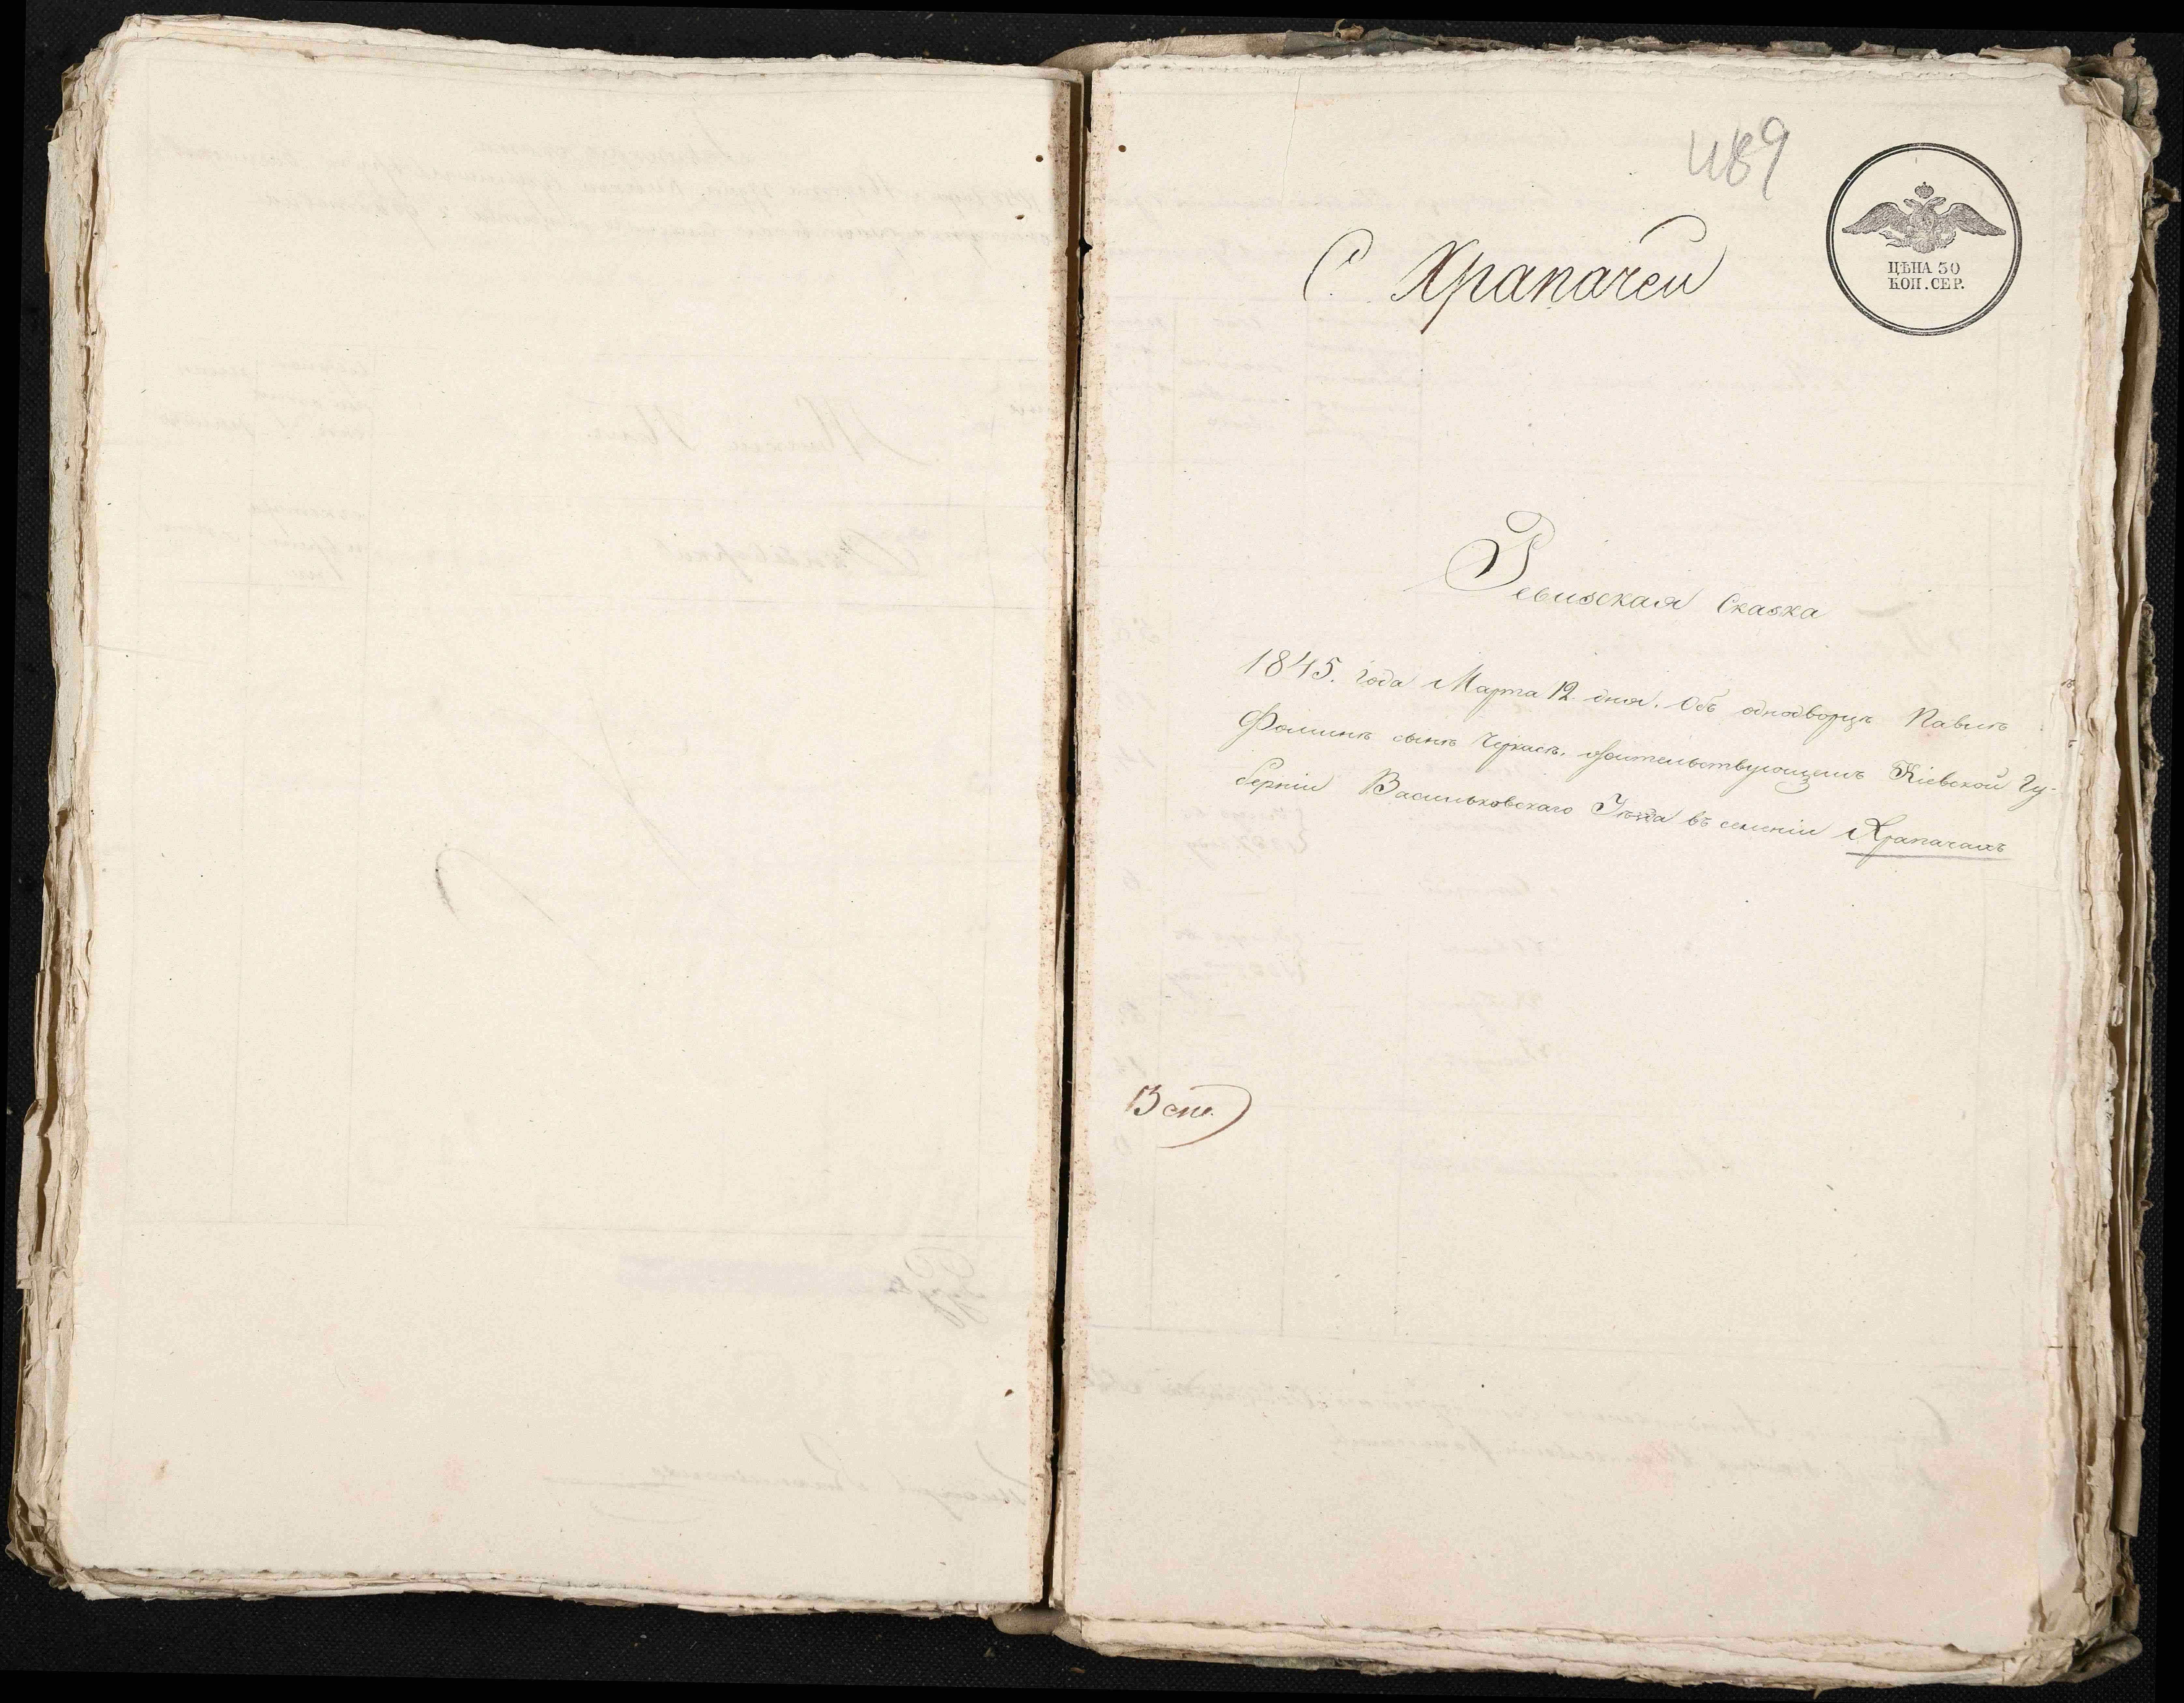 489
С. Храпачеи
ЦѢНА 30
КОП. СЕР.
Ревизская Сказка
1845. года Марта 12. дня. Объ однодворцѣ Павлѣ
Фоминѣ сынѣ Черкасѣ. жительствующемъ Кіевской Гу-
берніи Васильковскаго Уѣзда въ селеніи Храпачахъ